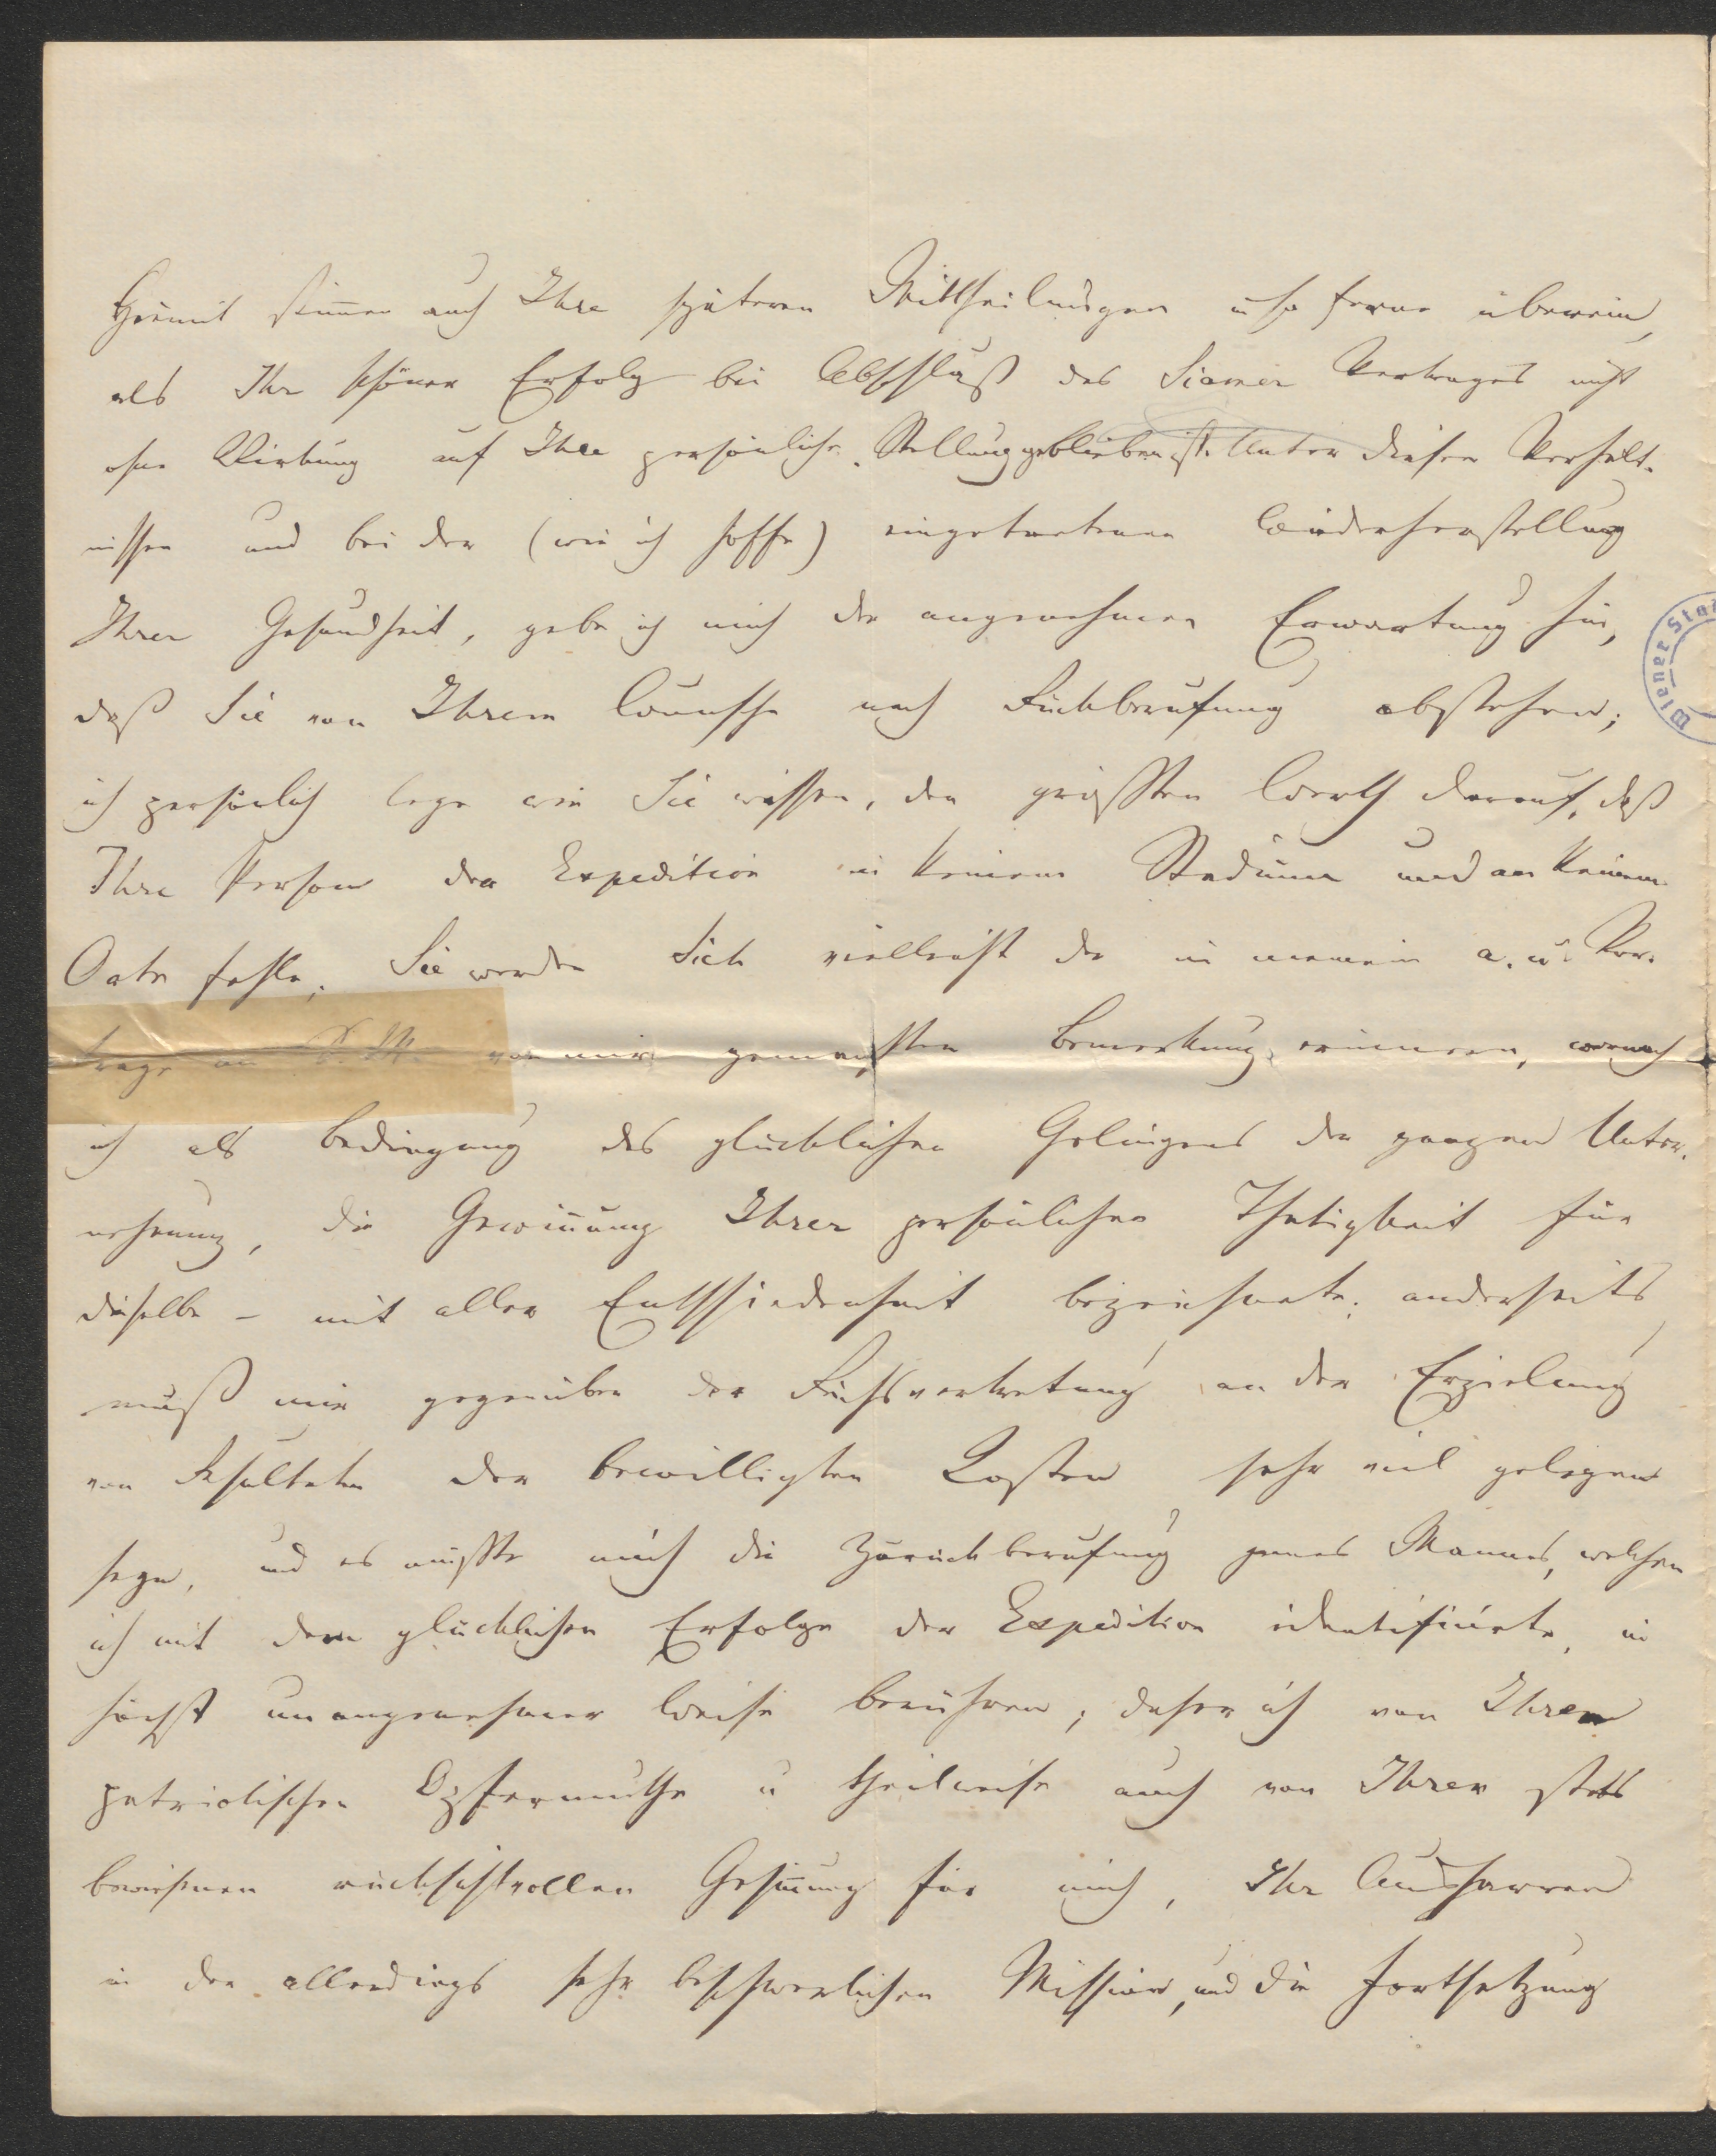 Hiemit stimmen auch Ihre späteren Mittheilungen in so ferne überein,
als Ihr schöner Erfolg bei Abschluß des Siamer Vertrages nicht
ohne Wirkung auf Ihre persönliche Stellung geblieben ist. Unter diesen Verhält-
nissen und bei der (wie ich hoffe) eingetretenen Wiederherstellung
Ihrer Gesundheit, gebe ich mich der angenehmen Erwartung hin,
daß Sie von Ihrem Wunsche nach Rückberufung abstehen;
ich persönlich lege wie Sie wissen, den größten Werth darauf, daß
Ihre Person der Expedition in keinem Stadium und an keinem
Orte fehle; Sie werden Sich vielleicht der in meinem a. u. Vor-
trage an S. M. von mir gemachten Bemerkung erinnern, wornach
ich als Bedingung des glücklichen Gelingens der ganzen Unter-
nehmung, die Gewinnung Ihrer persönlichen Thätigkeit für
dieselbe – mit aller Entschiedenheit bezeichnete; anderseits
muß mir gegenüber der Reichsvertretung an der Erzielung
von Resultaten der bewilligten Kosten sehr viel gelegen
seyn, und es müßte mich die Zurückberufung jenes Mannes, welchen
ich mit dem glücklichen Erfolge der Expedition identifizirte, in
höchst unangenehmer Weise berühren; daher ich von Ihrem
patriotischen Opfermuthe u theilweise auch von Ihrer stets
bewiesenen rücksichtvollen Gesinnung für mich, Ihr Ausharren
in der allerdings sehr beschwerlichen Mission, und die Fortsetzung
Wiener Stat